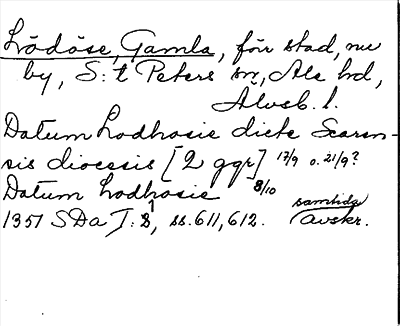 Lödöse, Gamla, förr stad, nu
by, S:t Peters sn, Ale hd,
Älvsb. l.
Datum Lodhosie dicte Scaren-
sis diocesis [2 ggr] 17/9 o. 21/9?
Datum Lodhosie 8/10
1351 SDa I: 8, ss. 611, 612. samtida
avskr.